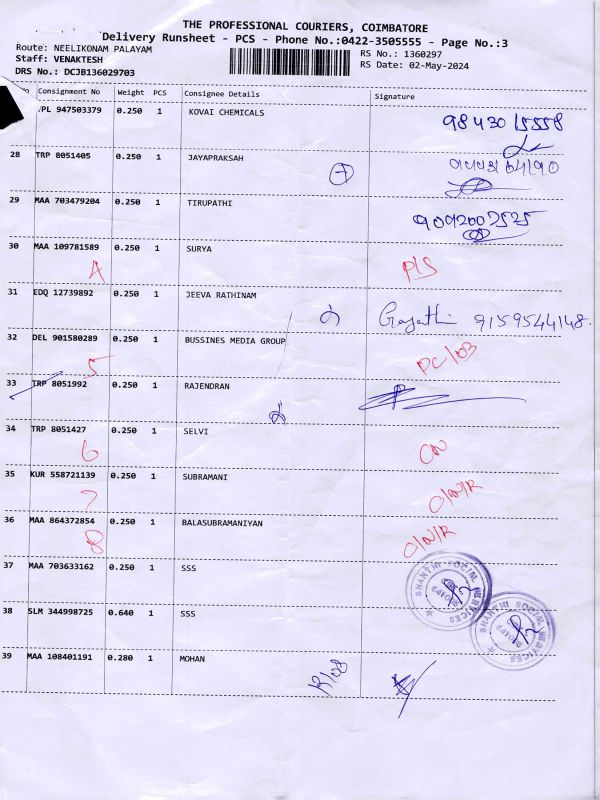 THE PROFESSIONAL COURIERS, COIMBATORE
Delivery Runsheet - PCS - Phone No.:0422-3505555 - Page No.:3
Route: NEELIKONAM PALAYAM
Staff: VENAKTESH
DRS No.: DCJB136029703
RS No.: 1360297
RS Date: 02-May-2024
No Consignment No Weight PCS Consignee Details Signature
PL 947503379 0.250 1 KOVAI CHEMICALS 9843015558
28 TRP 8051405 0.250 1 JAYAPRAKSAH
29 MAA 703479204 0.250 1 TIRUPATHI 9092007525
30 MAA 109781589 0.250 1 SURYA PLS
A
31 EDQ 12739892 0.250 1 JEEVA RATHINAM Gayathi 9159544148.
32 DEL 901580289 0.250 1 BUSSINES MEDIA GROUP PC/OB
5
33 TRP 8051992 0.250 1 RAJENDRAN
34 TRP 8051427 0.250 1 SELVI CN
6
35 KUR 558721139 0.250 1 SUBRAMANI O/N/R
7
36 MAA 864372854 0.250 1 BALASUBRAMANIYAN O/N/R
8
37 MAA 703633162 0.250 1 SSS
SHANTHI SOCIAL SERVICES
38 SLM 344998725 0.640 1 SSS
SHANTHI SOCIAL SERVICES
39 MAA 108401191 0.280 1 MOHAN